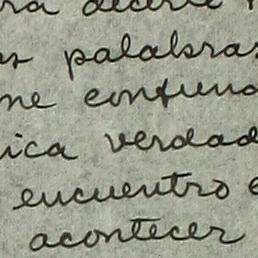 ra decirte
palabras
me confund
ica verdad
encuentro e
acontecer